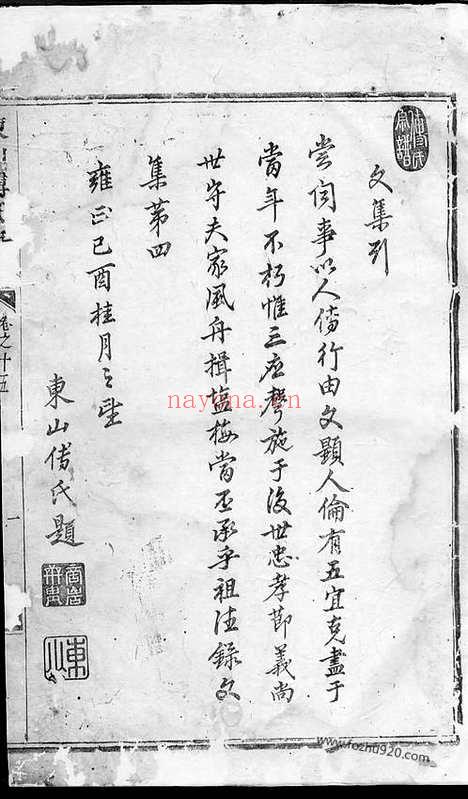 文集引
嘗闻事以人傳行由文顯人倫有五宜克盡于
當年不朽惟三庶聲施于後世忠孝節義尚
世守夫家風舟揖塩梅當丕承乎祖德錄文
集第四
雍正己酉桂月之望
東山傅氏題
東山
卷之十五
一
nayona.cn
www.fozhu920.com